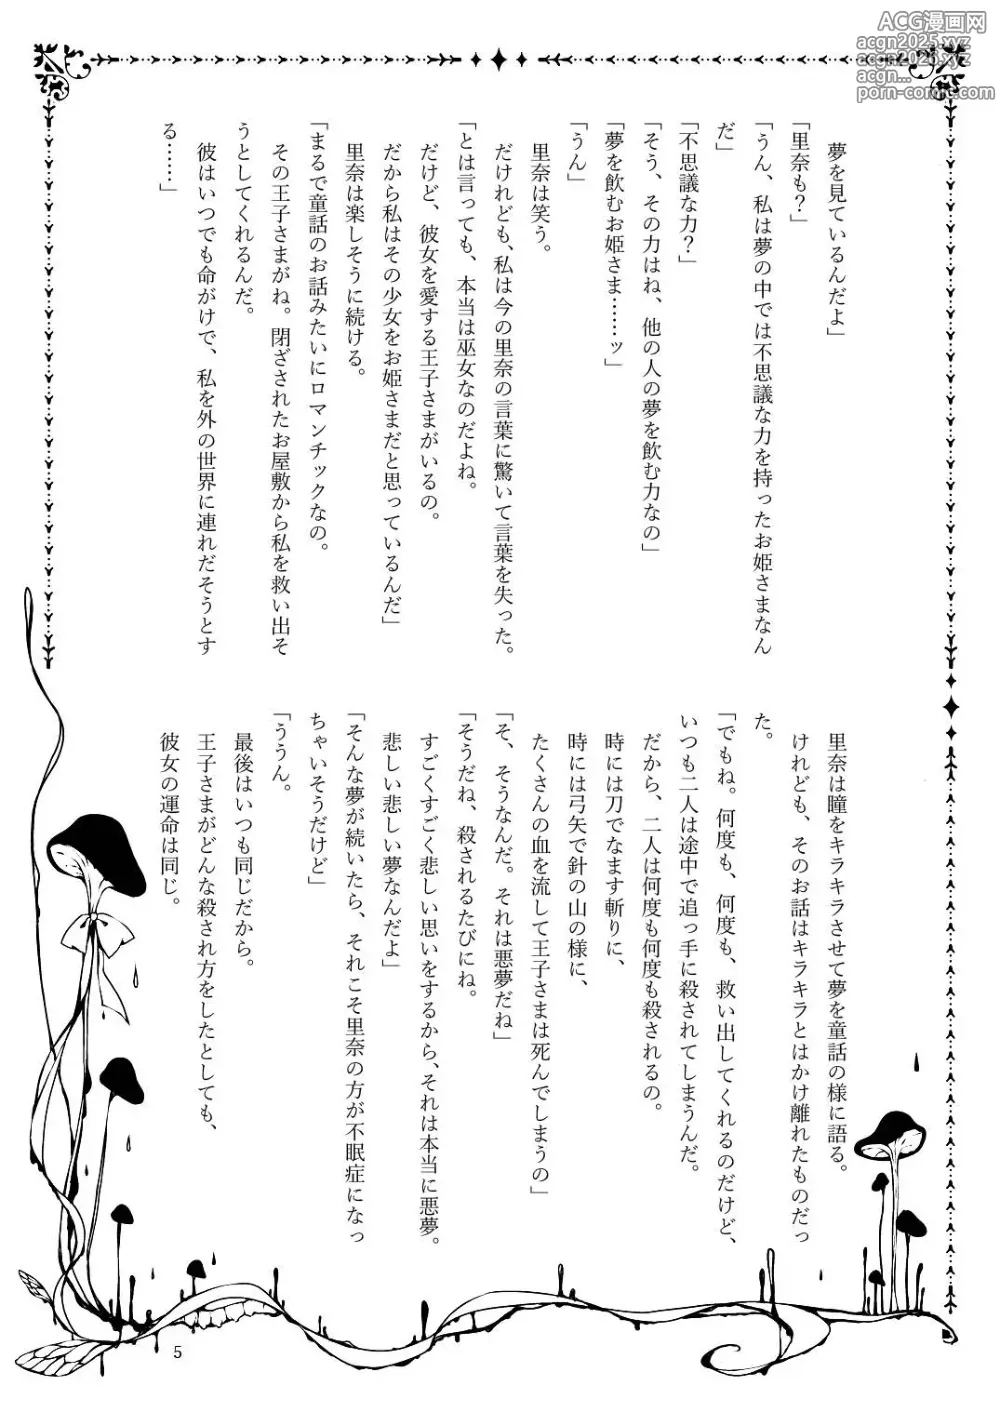 ACG漫画网
acgn2025.xyz
acgn2026.xyz
acgn...
porn-comic.com
夢を見ているんだよ」
「里奈も？」
「うん、私は夢の中では不思議な力を持ったお姫さまなん
だ」
「不思議な力？」
「そう、その力はね、他の人の夢を飲む力なの」
「夢を飲むお姫さま……ッ」
「うん」
里奈は笑う。
だけれども、私は今の里奈の言葉に驚いて言葉を失った。
「とは言っても、本当は巫女なのだよね。
だけど、彼女を愛する王子さまがいるの。
だから私はその少女をお姫さまだと思っているんだ」
里奈は楽しそうに続ける。
「まるで童話のお話みたいにロマンチックなの。
その王子さまがね。閉ざされたお屋敷から私を救い出そ
うとしてくれるんだ。
彼はいつでも命がけで、私を外の世界に連れだそうとす
る……」
里奈は瞳をキラキラさせて夢を童話の様に語る。
けれども、そのお話はキラキラとはかけ離れたものだっ
た。
「でもね。何度も、何度も、救い出してくれるのだけど、
いつも二人は途中で追っ手に殺されてしまうんだ。
だから、二人は何度も何度も殺されるの。
時には刀でなます斬りに、
時には弓矢で針の山の様に、
たくさんの血を流して王子さまは死んでしまうの」
「そ、そうなんだ。それは悪夢だね」
「そうだね、殺されるたびにね。
すごくすごく悲しい思いをするから、それは本当に悪夢。
悲しい悲しい夢なんだよ」
「そんな夢が続いたら、それこそ里奈の方が不眠症になっ
ちゃいそうだけど」
「ううん。
最後はいつも同じだから。
王子さまがどんな殺され方をしたとしても、
彼女の運命は同じ。
5